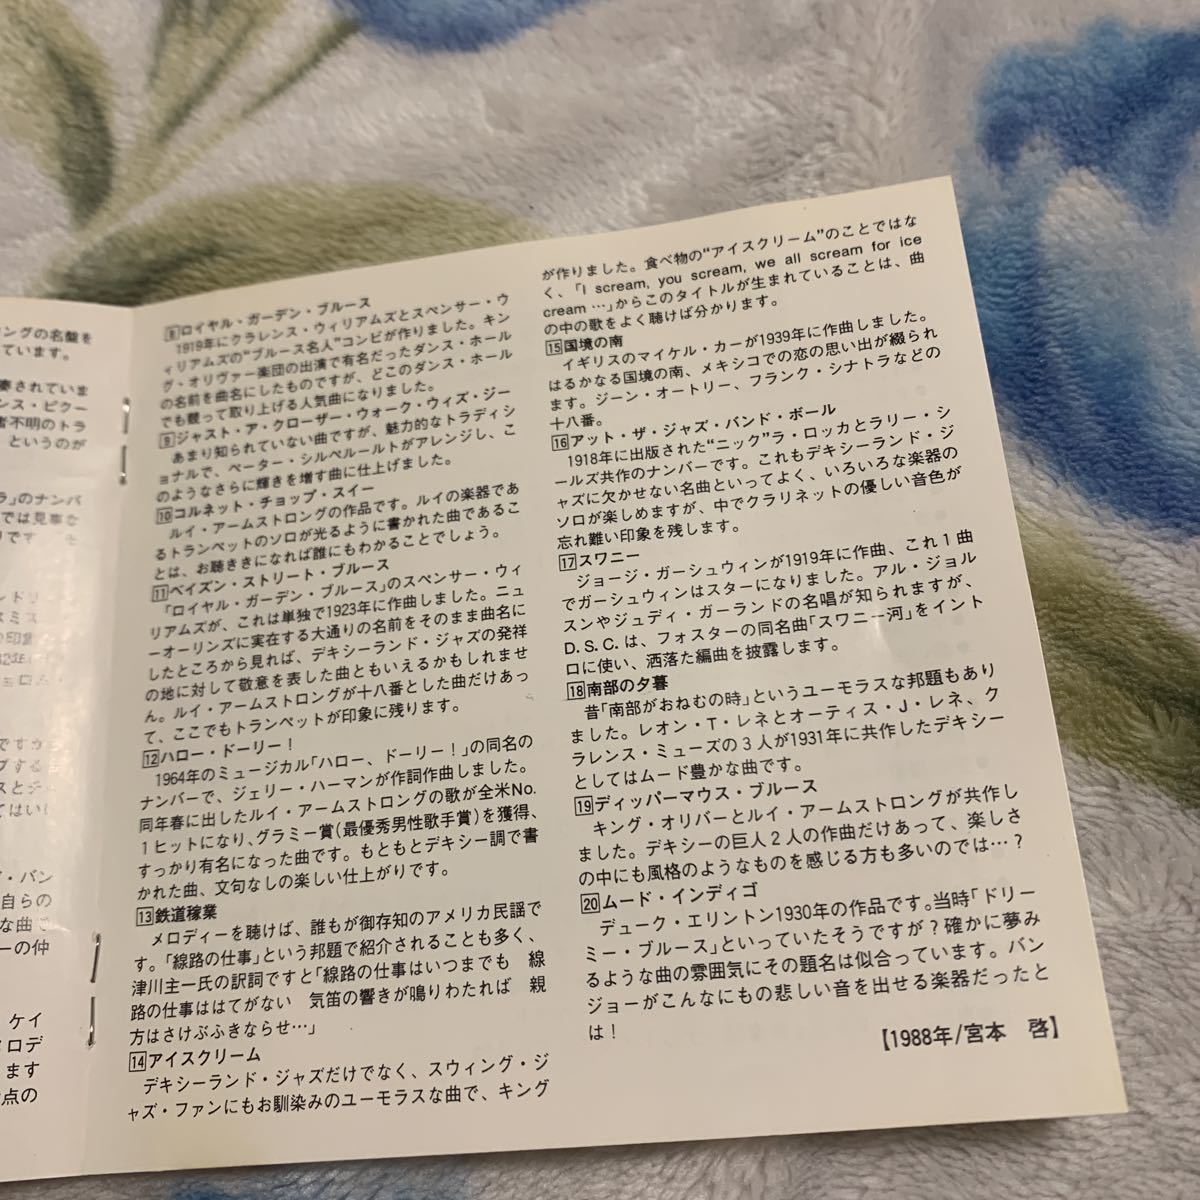 ングの名盤を
ています。
奏されていま
ンス・ピクー
者不明のトラ
というのが
ラ」のナンバ
では見事な
ンドリ
の印象
ですが
プする
スとデ
てはい
・バン
自らの
な曲で
ーの仲
ケイ
メロデ
ます
点の
8ロイヤル・ガーデン・ブルース
1919年にクラレンス・ウィリアムズとスペンサー・ウ
ィリアムズの“ブルース名人”コンビが作りました。キン
グ・オリヴァー楽団の出演で有名だったダンス・ホール
の名前を曲名にしたものですが、どこのダンス・ホール
でも競って取り上げる人気曲になりました。
9ジャスト・ア・クローザー・ウォーク・ウィズ・ジー
あまり知られていない曲ですが、魅力的なトラディシ
ョナルで、ペーター・シルペルールトがアレンジし、こ
のようなさらに輝きを増す曲に仕上げました。
10コルネット・チョップ・スイー
ルイ・アームストロングの作品です。ルイの楽器であ
るトランペットのソロが光るように書かれた曲であるこ
とは、お聴ききになれば誰にもわかることでしょう。
11ベイズン・ストリート・ブルース
「ロイヤル・ガーデン・ブルース」のスペンサー・ウィ
リアムズが、これは単独で1923年に作曲しました。ニュ
ーオーリンズに実在する大通りの名前をそのまま曲名に
したところから見れば、デキシーランド・ジャズの発祥
の地に対して敬意を表した曲ともいえるかもしれませ
ん。ルイ・アームストロングが十八番とした曲だけあっ
て、ここでもトランペットが印象に残ります。
12ハロー・ドーリー！
1964年のミュージカル「ハロー、ドーリー！」の同名の
ナンバーで、ジェリー・ハーマンが作詞作曲しました。
同年春に出したルイ・アームストロングの歌が全米No.
1ヒットになり、グラミー賞(最優秀男性歌手賞)を獲得、
すっかり有名になった曲です。もともとデキシー調で書
かれた曲、文句なしの楽しい仕上がりです。
13鉄道稼業
メロディーを聴けば、誰もが御存知のアメリカ民謡で
す。「線路の仕事」という邦題で紹介されることも多く、
津川主一氏の訳詞ですと「線路の仕事はいつまでも　線
路の仕事ははてがない　気笛の響きが鳴りわたれば　親
方はさけぶふきならせ…」
14アイスクリーム
デキシーランド・ジャズだけでなく、スウィング・ジ
ャズ・ファンにもお馴染みのユーモラスな曲で、キング
が作りました。食べ物の“アイスクリーム”のことではな
く、「I scream, you scream, we all scream for ice
cream …」からこのタイトルが生まれていることは、曲
の中の歌をよく聴けば分かります。
15国境の南
イギリスのマイケル・カーが1939年に作曲しました。
はるかなる国境の南、メキシコでの恋の思い出が綴られ
ます。ジーン・オートリー、フランク・シナトラなどの
十八番。
16アット・ザ・ジャズ・バンド・ボール
1918年に出版された“ニック”ラ・ロッカとラリー・シ
ールズ共作のナンバーです。これもデキシーランド・ジ
ャズに欠かせない名曲といってよく、いろいろな楽器の
ソロが楽しめますが、中でクラリネットの優しい音色が
忘れ難い印象を残します。
17スワニー
ジョージ・ガーシュウィンが1919年に作曲、これ1曲
でガーシュウィンはスターになりました。アル・ジョル
スンやジュディ・ガーランドの名唱が知られますが、
D.S.C.は、フォスターの同名曲「スワニー河」をイント
ロに使い、洒落た編曲を披露します。
18南部の夕暮
昔「南部がおねむの時」というユーモラスな邦題もあり
ました。レオン・T・レネとオーティス・J・レネ、ク
ラレンス・ミューズの3人が1931年に共作したデキシー
としてはムード豊かな曲です。
19ディッパーマウス・ブルース
キング・オリバーとルイ・アームストロングが共作し
ました。デキシーの巨人2人の作曲だけあって、楽しさ
の中にも風格のようなものを感じる方も多いのでは…？
20ムード・インディゴ
デューク・エリントン1930年の作品です。当時「ドリー
ミー・ブルース」といっていたそうですが？確かに夢み
るような曲の雰囲気にその題名は似合っています。バン
ジョーがこんなにもの悲しい音を出せる楽器だったと
は！
【1988年/宮本　啓】